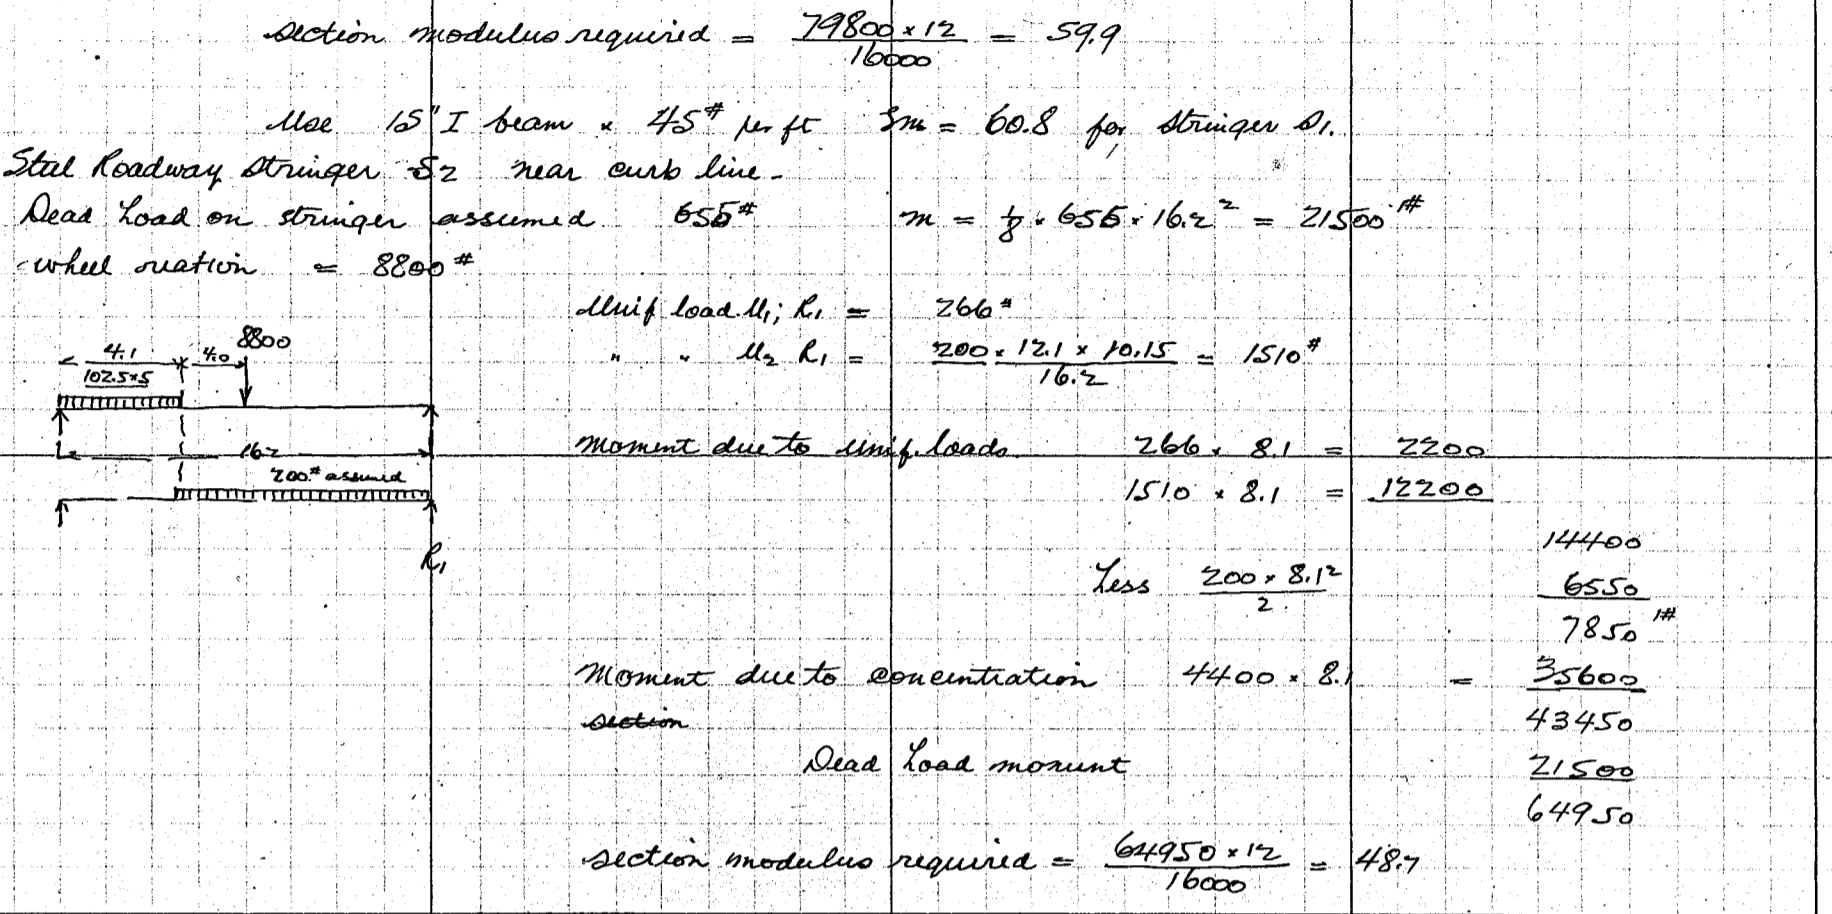 section modulus required = 79800 × 12 / 16000 = 59.9
Use 15" I beam × 45# per ft Sm = 60.8 for stringer S1.
Steel Roadway Stringer S2 near curb line -
Dead Load on stringer assumed 655# m = 1/8 × 655 × 16.2² = 21500'#
wheel reaction = 8800#
Unif load U1; R1 = 266#
" " U2 R1 = 200 × 12.1 × 10.15 / 16.2 = 1510#
8800
4.1 4.0
102.5×5
16.2
200# assumed
R1
Moment due to unif. loads 266 × 8.1 = 2200
1510 × 8.1 = 12200
14400
Less 200 × 8.1² / 2. 6550
7850'#
Moment due to concentration 4400 × 8.1 = 35600
section
43450
Dead Load moment 21500
64950
section modulus required = 64950 × 12 / 16000 = 48.7